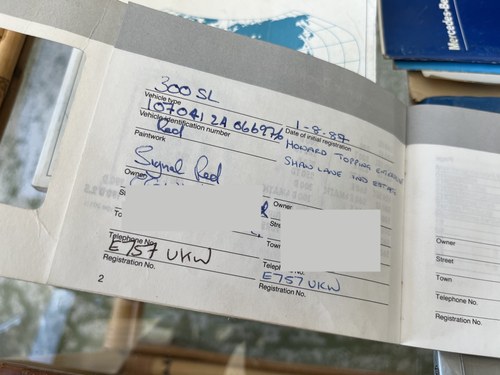 300 SL
Vehicle type
107041 2A 066976
Vehicle identification number
Red
Paintwork
Signal Red
Owner
St
To
Telephone No.
E757 UKW
Registration No.
2
1-8-87
Date of initial registration
HOWARD TOPPING
SHAW LANE IND ESTATE
Owner
Stre
Town
Telep
E757 UKW
Registration No.
Owner
Street
Town
Telephone No.
Registration No.
Mercedes-Be